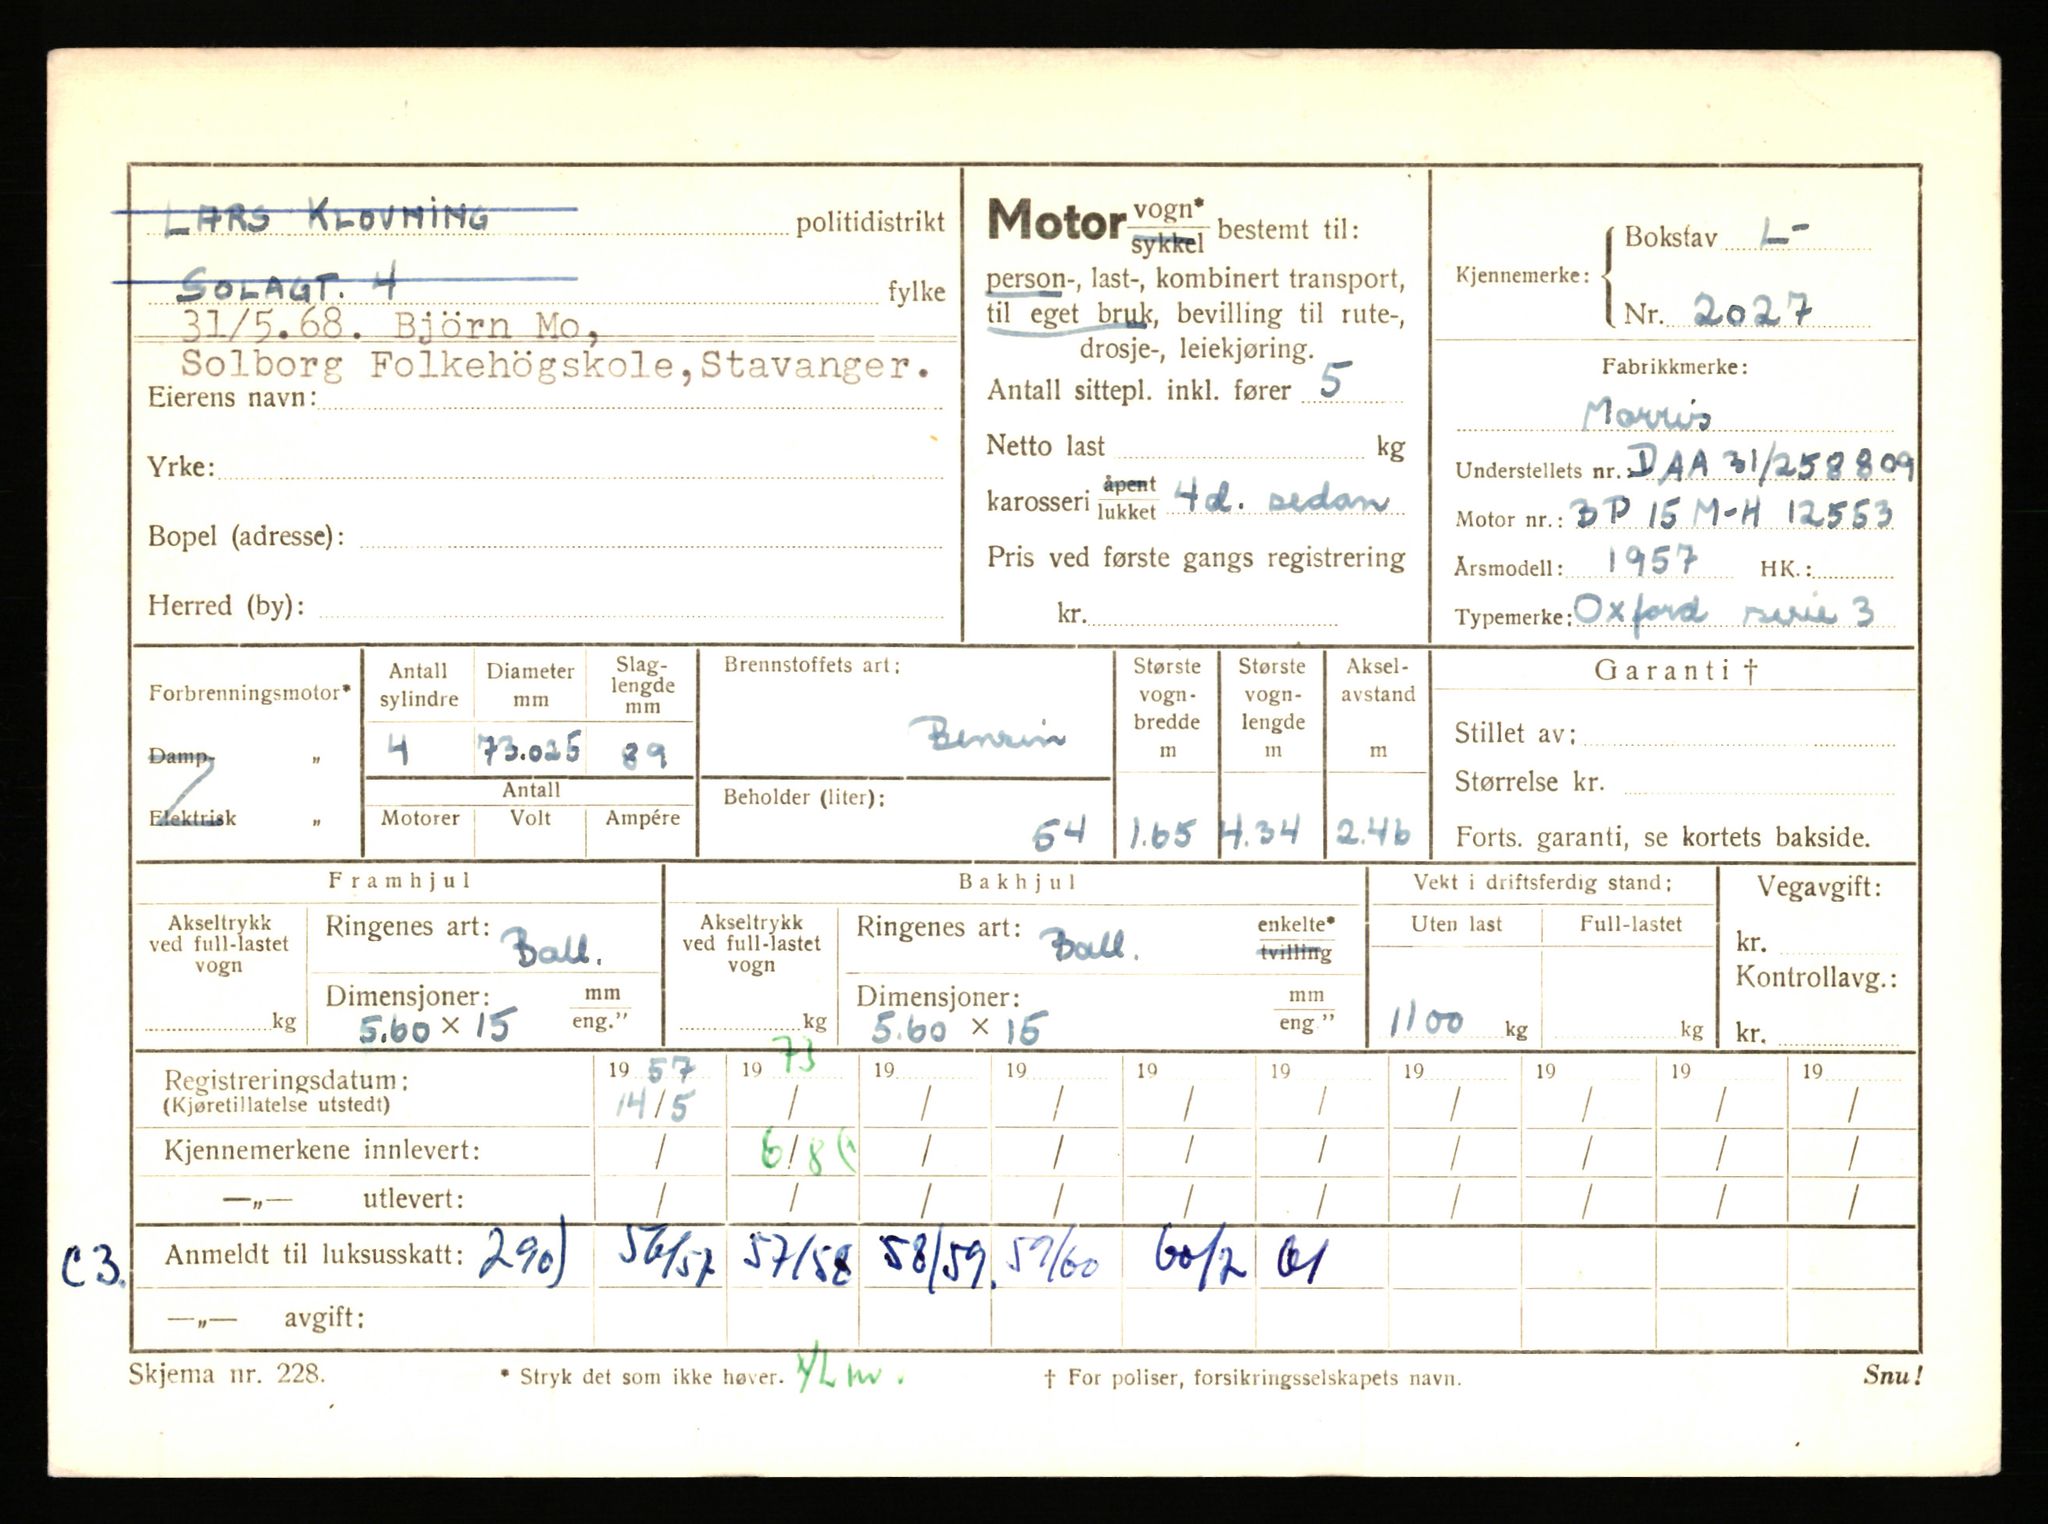 LARS KLOVNING politidistrikt
SOLAGT. 4 fylke
31/5.68. Björn Mo,
Solborg Folkehögskole, Stavanger.
Eierens navn:
Yrke:
Bopel (adresse):
Herred (by):
Motor vogn* sykkel bestemt til:
person-, last-, kombinert transport,
til eget bruk, bevilling til rute-,
drosje-, leiekjøring.
Antall sittepl. inkl. fører 5
Netto last kg
karosseri åpent lukket 4d. sedan
Pris ved første gangs registrering
kr.
Kjennemerke: Bokstav L-
Nr. 2027
Fabrikkmerke:
Morris
Understellets nr.: DAA 31/258809
Motor nr.: BP 15 M-H 12553
Årsmodell: 1957 HK.:
Typemerke: Oxford serie 3
Forbrenningsmotor*
Damp- „
Elektrisk „
Antall sylindre Diameter mm Slag-lengde mm
4 73.025 89
Antall
Motorer Volt Ampére
Brennstoffets art:
Bensin
Beholder (liter):
54
Største vogn-bredde m
1.65
Største vogn-lengde m
4.34
Aksel-avstand m
2.46
Garanti †
Stillet av:
Størrelse kr.
Forts. garanti, se kortets bakside.
Framhjul
Akseltrykk ved full-lastet vogn
kg
Ringenes art: Ball.
Dimensjoner: mm eng.”
5.60 × 15
Bakhjul
Akseltrykk ved full-lastet vogn
kg
Ringenes art: Ball. enkelte* tvilling
Dimensjoner: mm eng”
5.60 × 15
Vekt i driftsferdig stand:
Uten last Full-lastet
1100 kg kg
Vegavgift:
kr.
Kontrollavg.:
kr.
Registreringsdatum: 19 57 19 73 19 19 19 19 19 19 19 19
(Kjøretillatelse utstedt) 14/5 / / / / / / / / /
Kjennemerkene innlevert: / 6/8 / / / / / / / /
—„— utlevert: / / / / / / / / / /
C3. Anmeldt til luksusskatt: 290) 56/57 57/58 58/59. 59/60 60/2 61
—„— avgift:
Skjema nr. 228. * Stryk det som ikke høver. † For poliser, forsikringsselskapets navn. Snu!